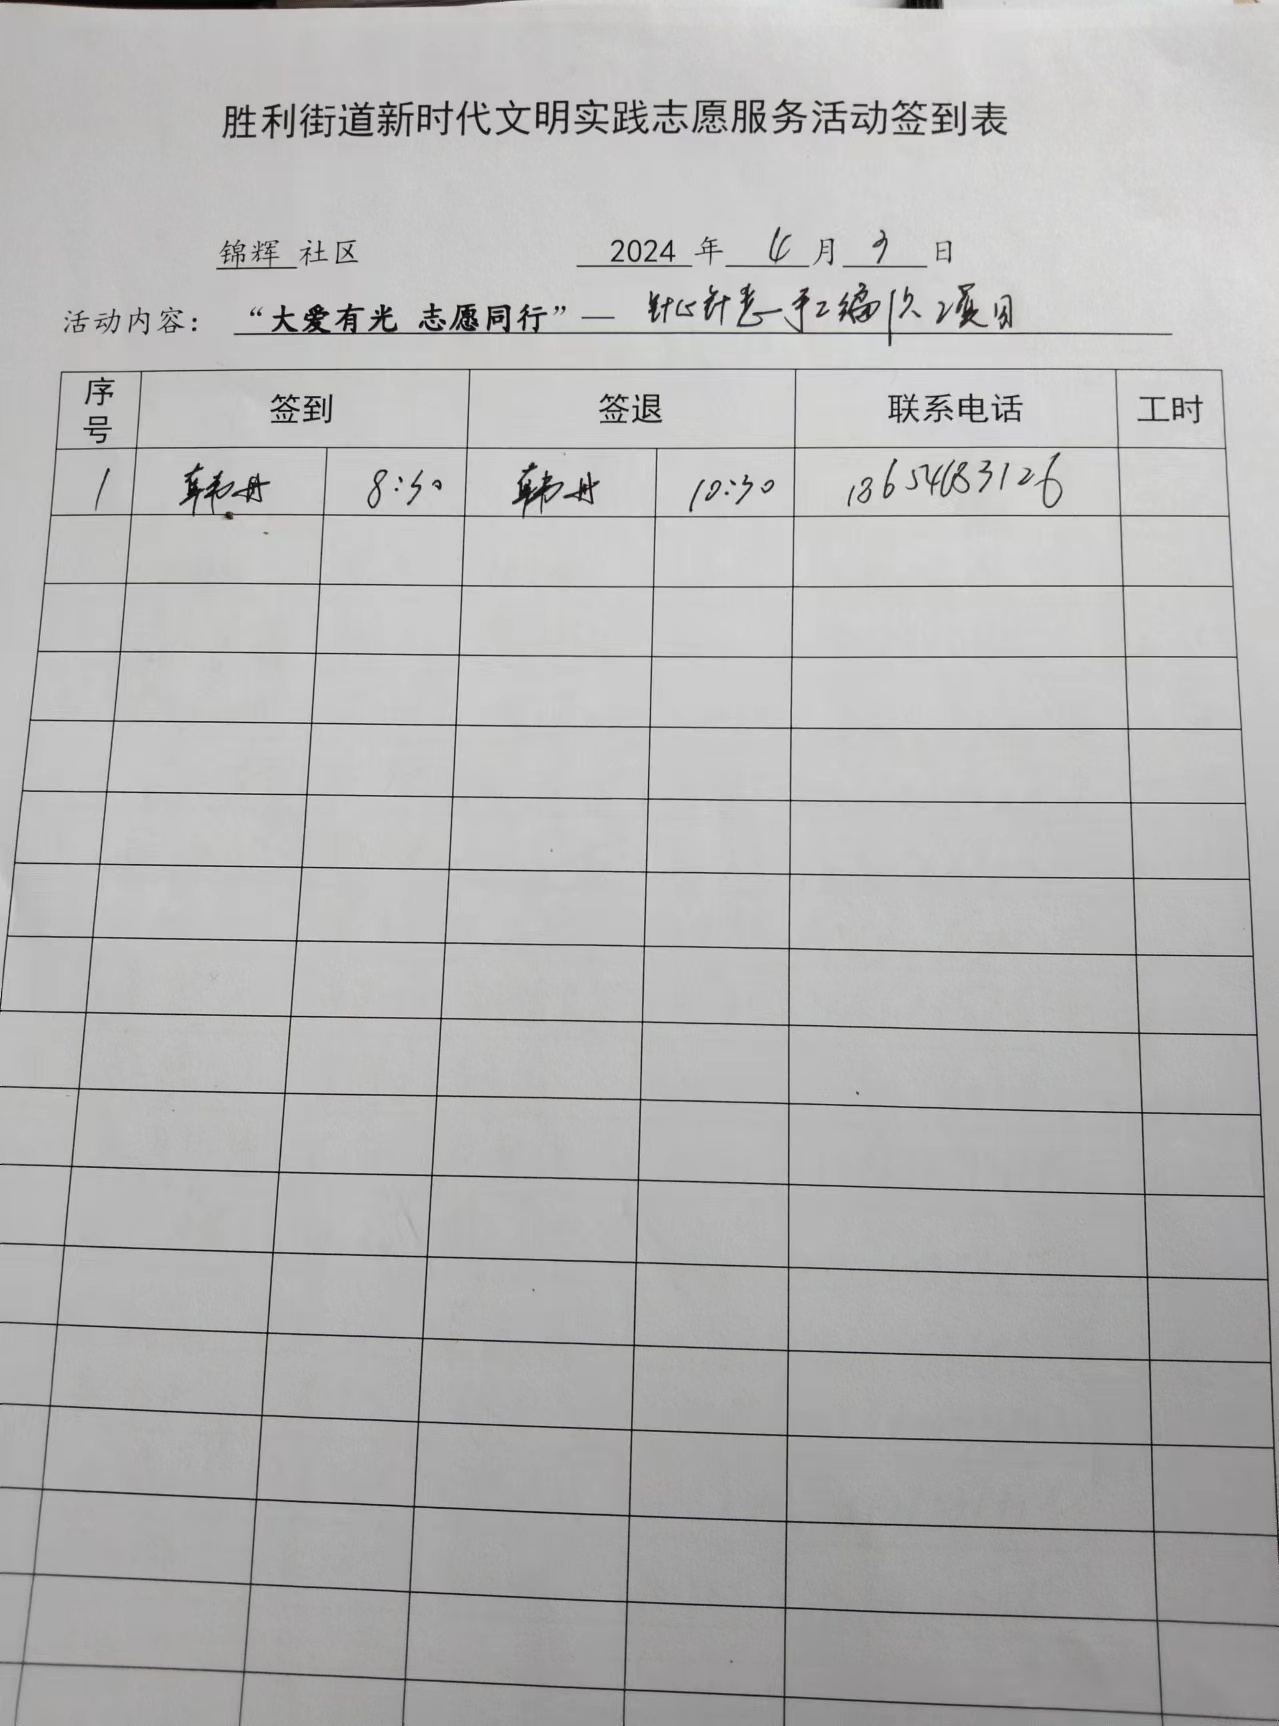 胜利街道新时代文明实践志愿服务活动签到表
锦辉 社区 2024 年 4 月 3 日
活动内容：“大爱有光 志愿同行”— 手工编 项目
序号 签到 签退 联系电话 工时
1 韩丹 8:30 韩丹 10:30 18654683126